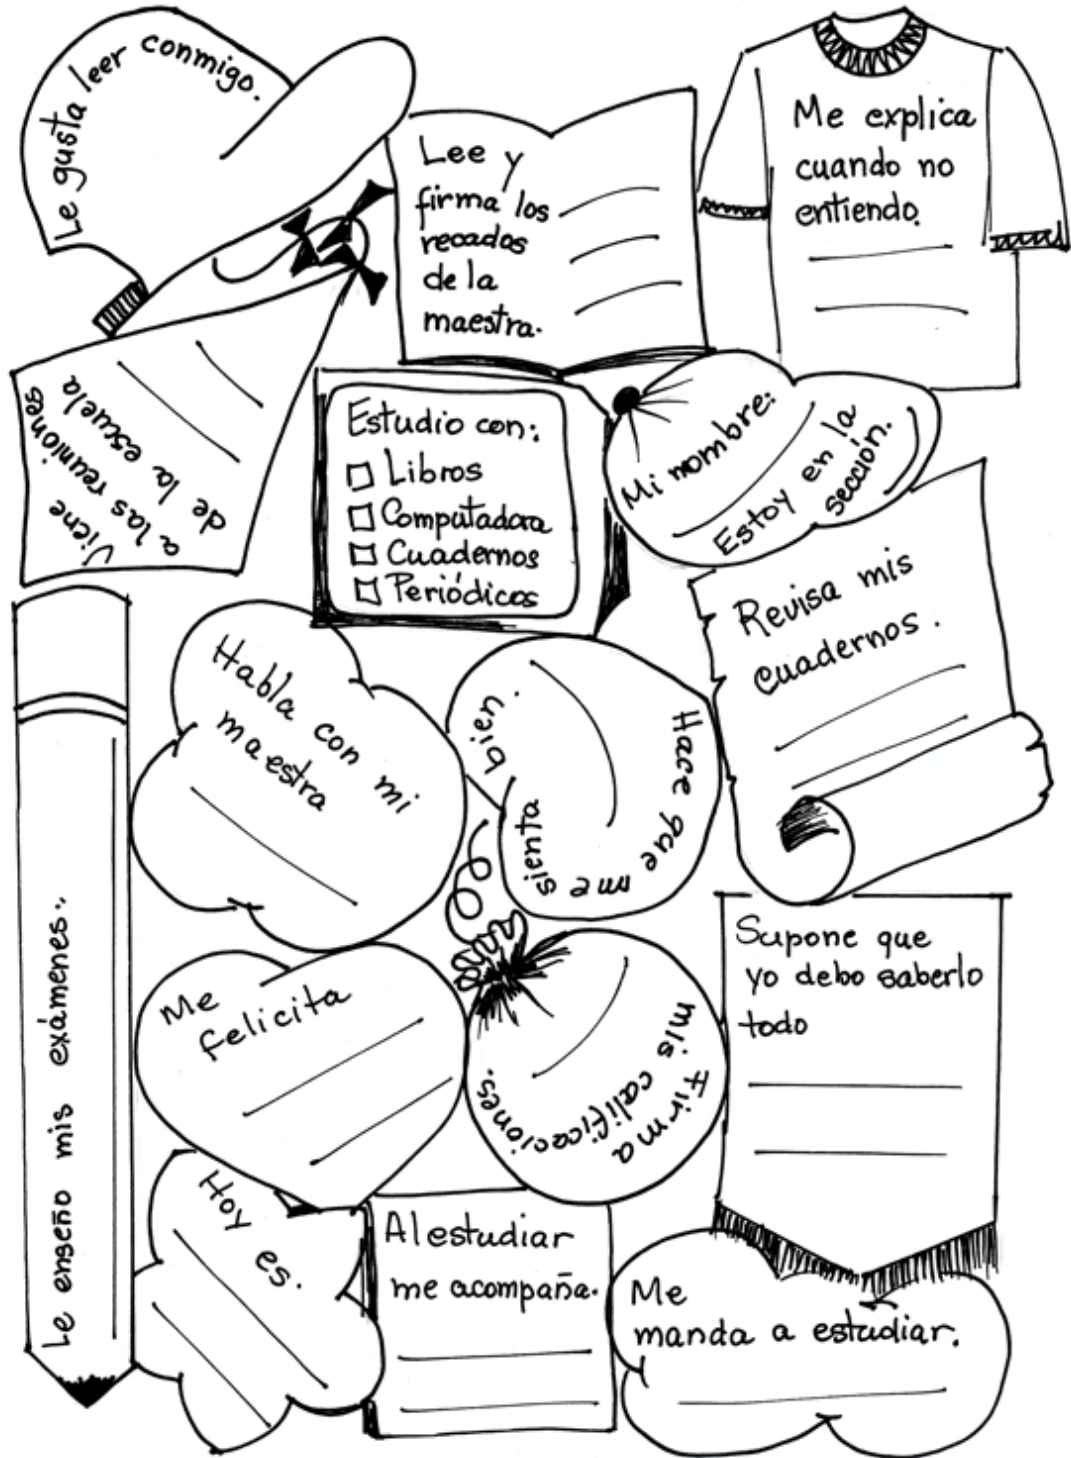 Le gusta leer conmigo.
Lee y
firma los
recados
de la
maestra.
Me explica
cuando no
entiendo.
Viene
a las reuniones
de la escuela
Estudio con:
Libros
Computadora
Cuadernos
Periódicos
Mi nombre:
Estoy en la
sección.
Revisa mis
cuadernos.
Habla con mi
maestra
Hace que me sienta bien.
Le enseño mis exámenes.
Me
felicita
Firma
mis calificaciones.
Supone que
yo debo saberlo
todo
Hoy es.
Al estudiar
me acompaña.
Me
manda a estudiar.